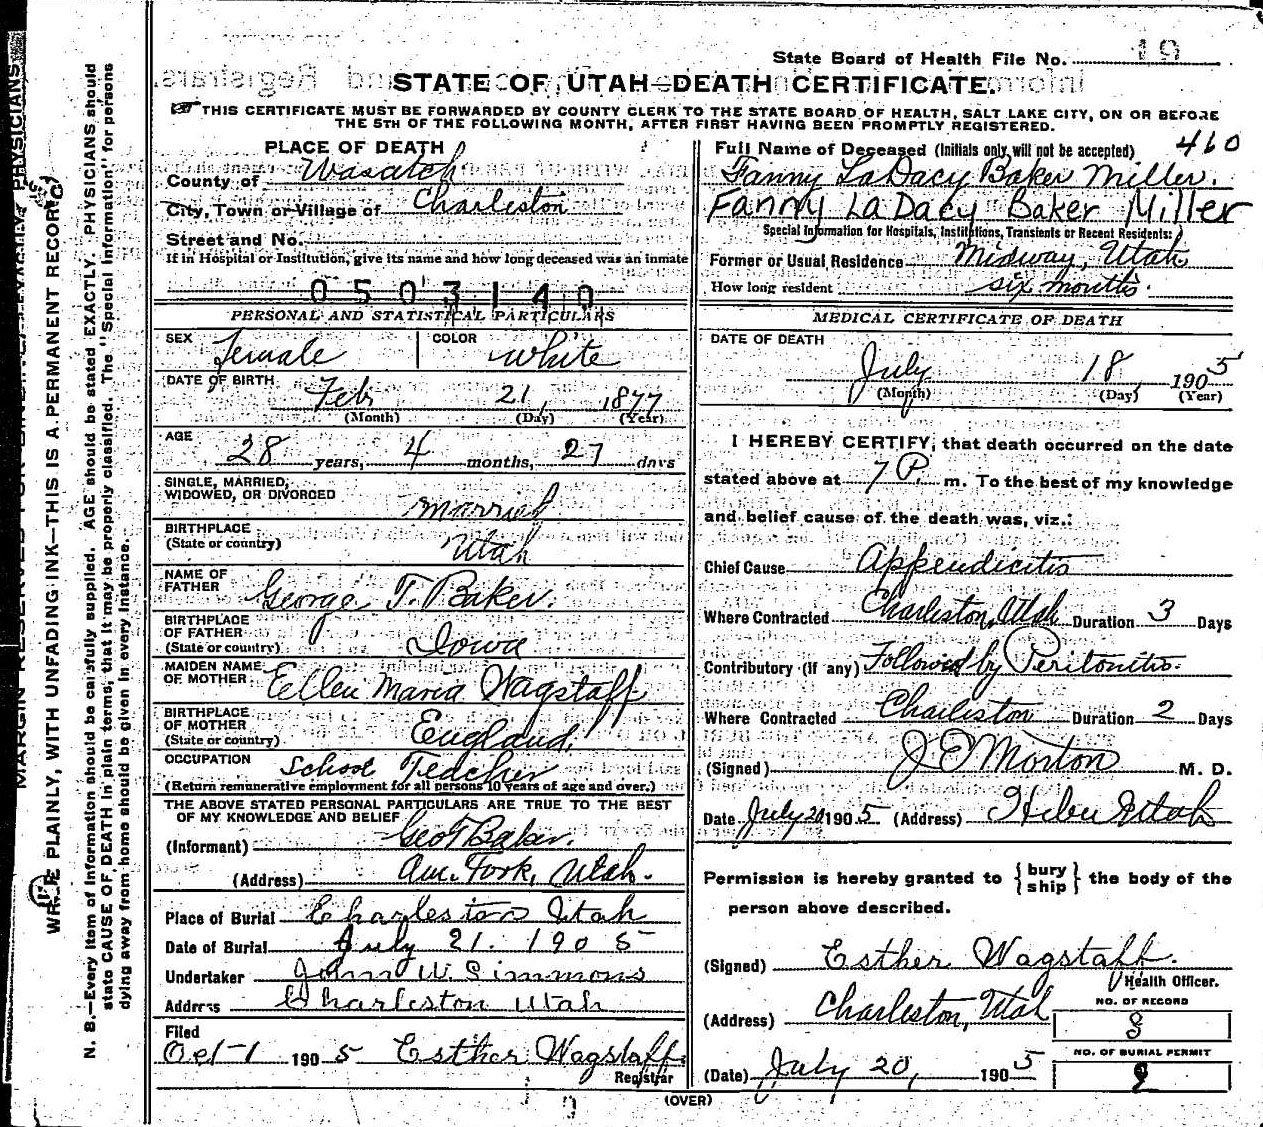 State Board of Health File No.
STATE OF UTAH—DEATH CERTIFICATE.
THIS CERTIFICATE MUST BE FORWARDED BY COUNTY CLERK TO THE STATE BOARD OF HEALTH, SALT LAKE CITY, ON OR BEFORE
THE 5TH OF THE FOLLOWING MONTH, AFTER FIRST HAVING BEEN PROMPTLY REGISTERED.
PLACE OF DEATH
County of Wasatch
City, Town or Village of Charleston
Street and No.
If in Hospital or Institution, give its name and how long deceased was an inmate
0503140
PERSONAL AND STATISTICAL PARTICULARS
SEX Female COLOR White
DATE OF BIRTH Feb 21, 1877
(Month) (Day) (Year)
AGE 28 years, 4 months, 27 days
SINGLE, MARRIED,
WIDOWED, OR DIVORCED married
BIRTHPLACE
(State or country) Utah
NAME OF
FATHER George T. Baker.
BIRTHPLACE
OF FATHER
(State or country) Iowa
MAIDEN NAME
OF MOTHER Ellen Maria Wagstaff
BIRTHPLACE
OF MOTHER
(State or country) England.
OCCUPATION School Teacher
(Return remunerative employment for all persons 10 years of age and over.)
THE ABOVE STATED PERSONAL PARTICULARS ARE TRUE TO THE BEST
OF MY KNOWLEDGE AND BELIEF
(Informant) Geo T Baker.
(Address) Am. Fork, Utah.
Place of Burial Charleston Utah
Date of Burial July 21. 1905
Undertaker John W. Simmons
Address Charleston Utah
Filed
Oct-1 1905 Esther Wagstaff.
Registrar
Full Name of Deceased (Initials only will not be accepted) 460
Fanny LaDacy Baker Miller.
Fanny LaDacy Baker Miller
Special Information for Hospitals, Institutions, Transients or Recent Residents:
Former or Usual Residence Midway, Utah
How long resident six months.
MEDICAL CERTIFICATE OF DEATH
DATE OF DEATH
July 18, 1905
(Month) (Day) (Year)
I HEREBY CERTIFY, that death occurred on the date
stated above at 7 P. m. To the best of my knowledge
and belief cause of the death was, viz.:
Chief Cause Appendicitis
Where Contracted Charleston, Utah Duration 3 Days
Contributory (if any) Followed by Peritonitis.
Where Contracted Charleston Duration 2 Days
(Signed) J E Morton M. D.
Date July 20 1905 (Address) Heber Utah
Permission is hereby granted to {bury ship} the body of the
person above described.
(Signed) Esther Wagstaff.
Health Officer.
(Address) Charleston, Utah
NO. OF RECORD
8
(Date) July 20, 1905
NO. OF BURIAL PERMIT
9
(OVER)
WRITE PLAINLY, WITH UNFADING INK—THIS IS A PERMANENT RECORD
N. B.—Every item of information should be carefully supplied. AGE should be stated EXACTLY. PHYSICIANS should
state CAUSE OF DEATH in plain terms, that it may be properly classified. The "Special Information" for persons
dying away from home should be given in every instance.